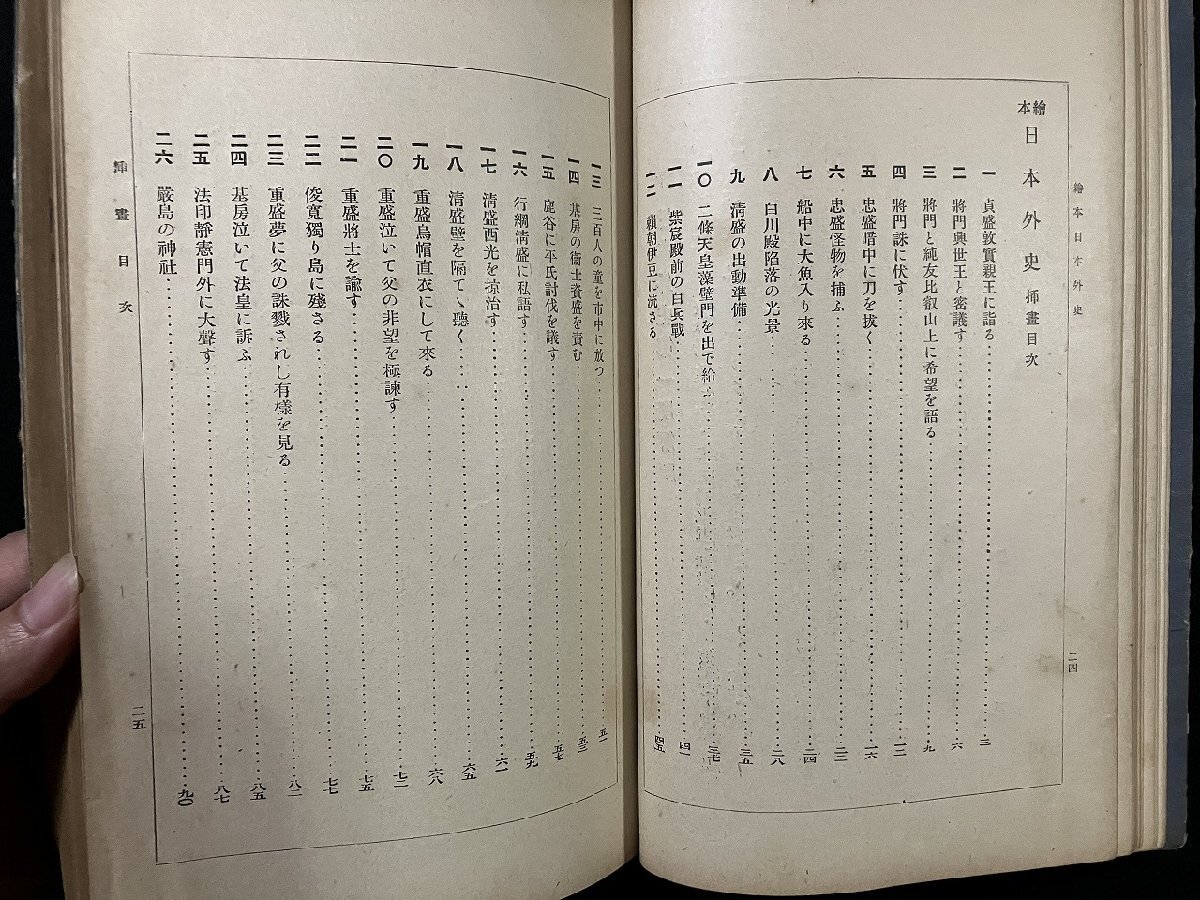 繪本日本外史
二四
繪本 日本外史 揷畫目次
一 貞盛敦實親王に詣る………三
二 將門興世王と密議す………六
三 將門と純友比叡山上に希望を語る………九
四 將門誅に伏す………一二
五 忠盛暗中に刀を拔く………一六
六 忠盛怪物を捕ふ………二二
七 船中に大魚入り來る………二四
八 白川殿陷落の光景………二八
九 淸盛の出動準備………三五
一〇 二條天皇藻壁門を出で給ふ………三七
一一 紫宸殿前の白兵戰………四一
一二 賴朝伊豆に流さる………四五
一三 三百人の童を市中に放つ………五一
一四 基房の衞士資盛を責む………五三
一五 鹿谷に平氏討伐を議す………五七
一六 行綱淸盛に私語す………五九
一七 淸盛西光を掠治す………六一
一八 淸盛壁を隔てゝ聽く………六五
一九 重盛烏帽直衣にして來る………六八
二〇 重盛泣いて父の非望を極諫す………七二
二一 重盛將士を諭す………七五
二二 俊寬獨り島に殘さる………七七
二三 重盛夢に父の誅戮されし有樣を見る………八二
二四 基房泣いて法皇に訴ふ………八五
二五 法印靜憲門外に大聲す………八七
二六 嚴島の神社………九〇
揷畫目次
二五